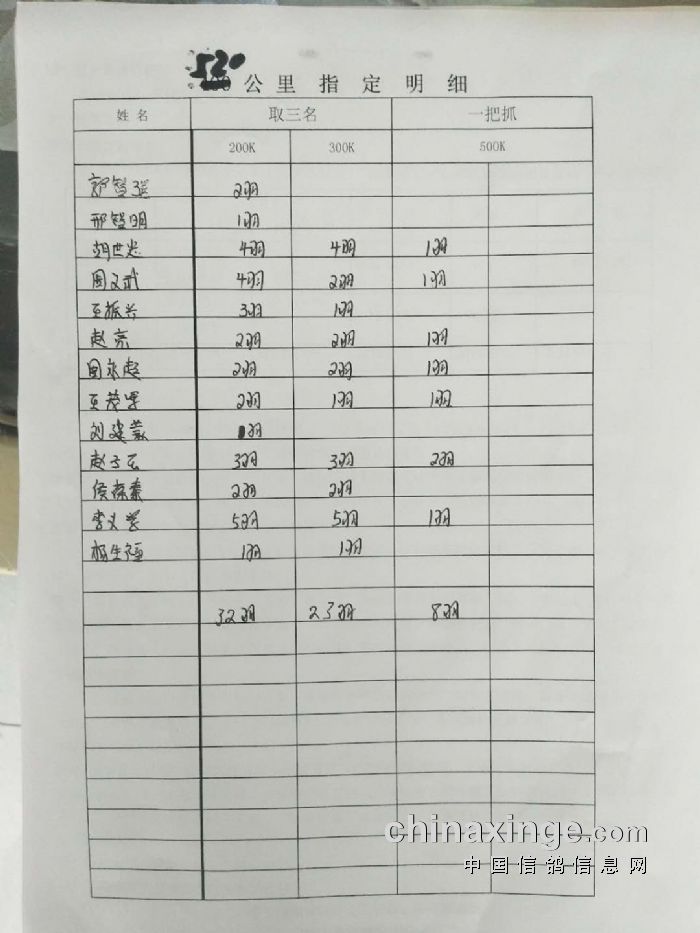 520 公里指定明细
姓名 取三名 一把抓
200K 300K 500K
2羽
邢智明 1羽
胡世忠 4羽 4羽 1羽
周文武 4羽 2羽 1羽
王振兴 3羽 1羽
赵亮 2羽 2羽 1羽
周永超 2羽 2羽 1羽
王 2羽 1羽 1羽
刘建 1羽
赵子云 3羽 3羽 2羽
侯 2羽 2羽
李义 5羽 5羽 1羽
杨生福 1羽 1羽
32羽 23羽 8羽
chinaxinge.com
中国信鸽信息网